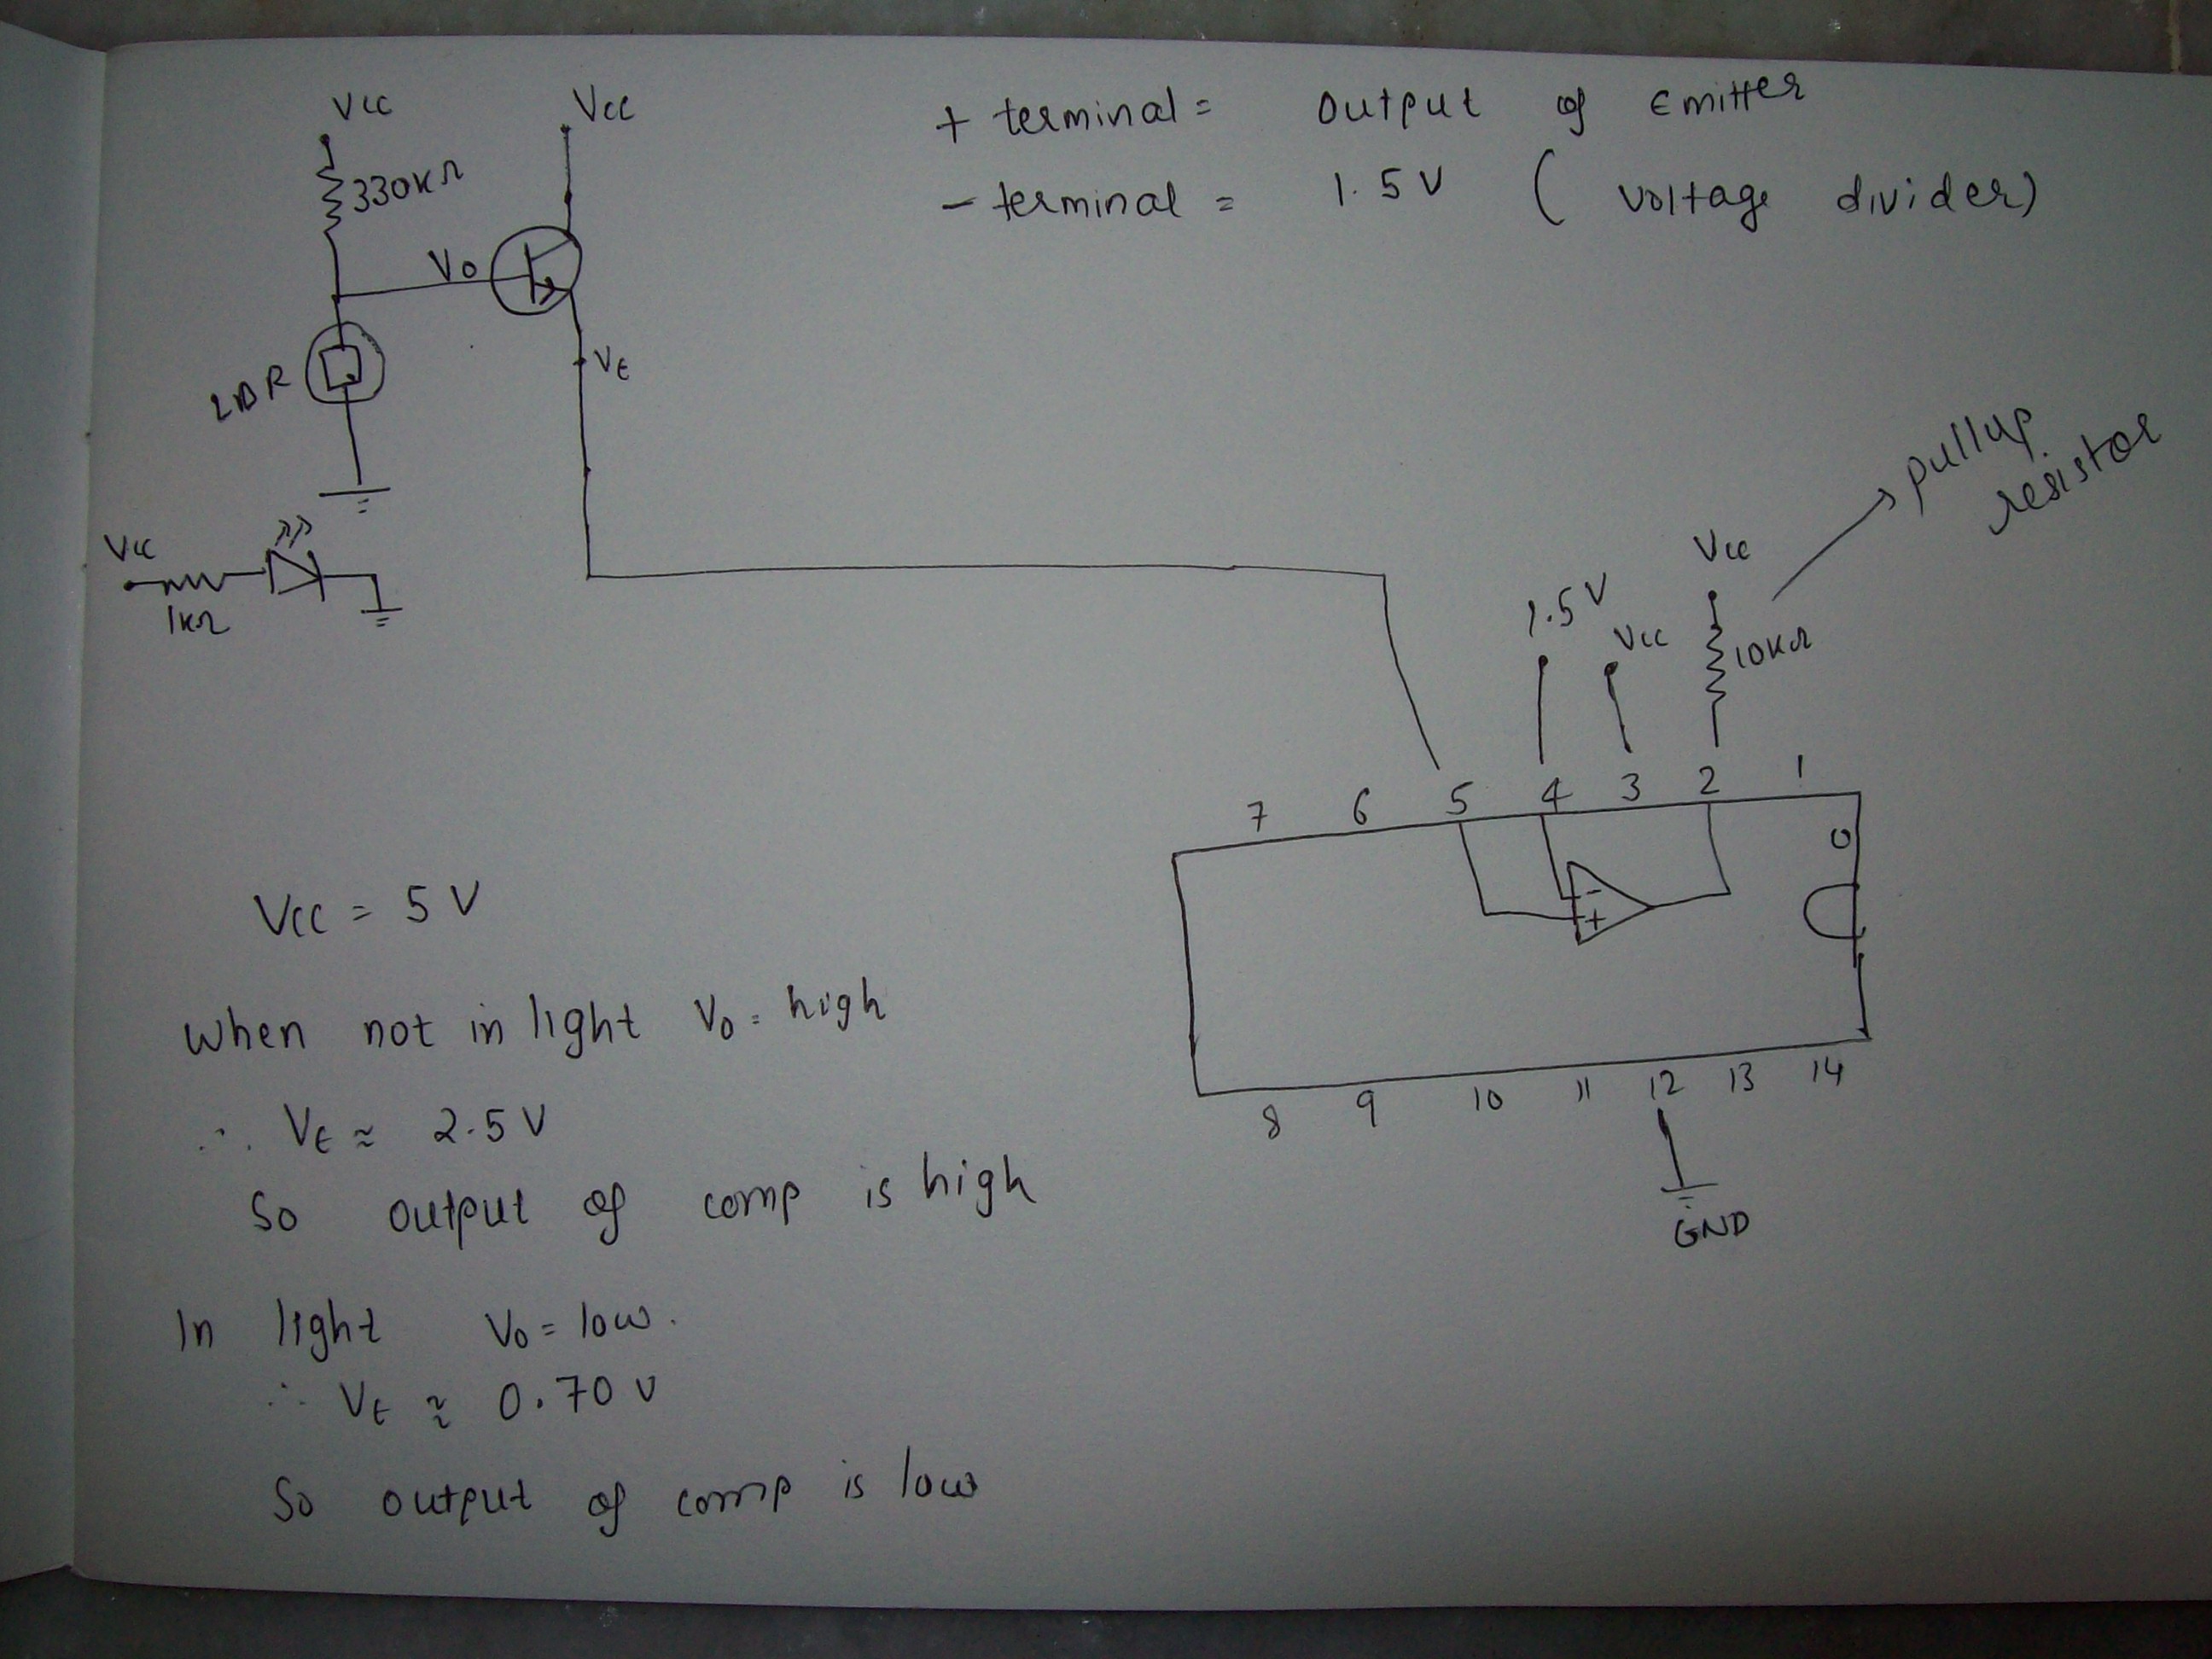 Vcc
Vcc
330KΩ
Vo
LDR
VE
Vcc
1KΩ
+ terminal = Output of Emitter
- terminal = 1.5V (Voltage divider)
pullup
resistor
Vcc
1.5V
Vcc
10KΩ
7 6 5 4 3 2 1
- +
8 9 10 11 12 13 14
GND
Vcc = 5V
When not in light Vo = high
∴ VE ≈ 2.5V
So output of comp is high
In light Vo = low.
∴ VE ≈ 0.70V
So output of comp is low